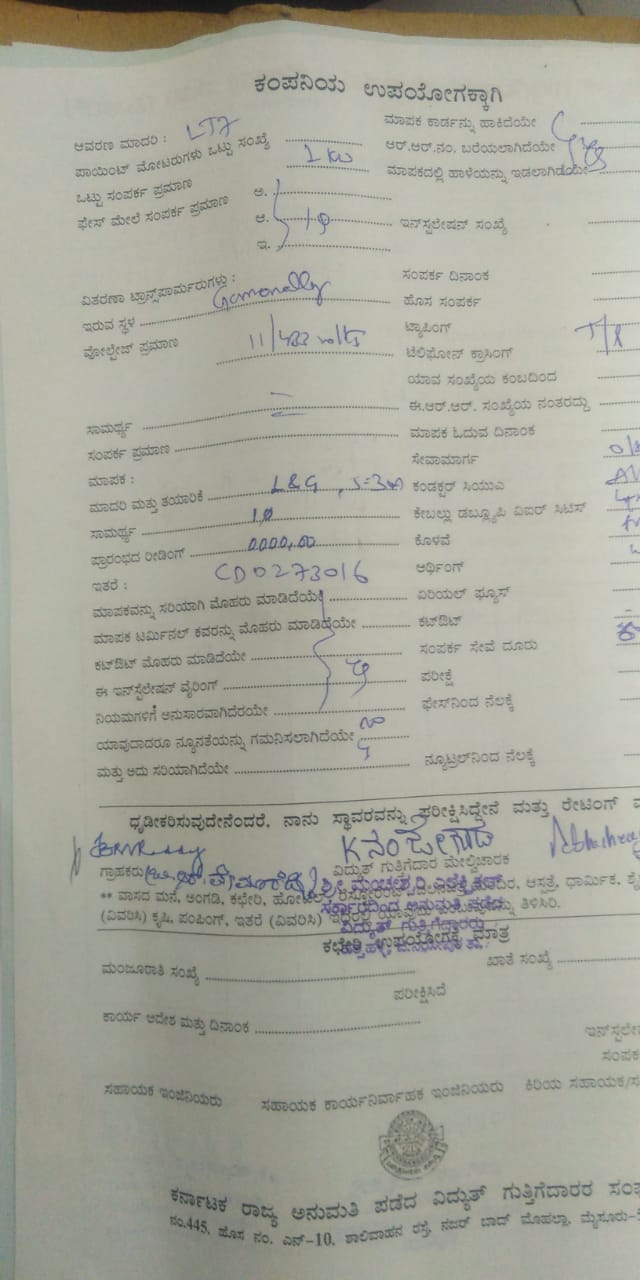 ಕಂಪನಿಯ ಉಪಯೋಗಕ್ಕಾಗಿ
ಆವರಣ ಮಾದರಿ : LT7
ಮಾಪಕ ಕಾರ್ಡನ್ನು ಹಾಕಿದೆಯೇ
ಪಾಯಿಂಟ್ ಮೋಟರುಗಳು ಒಟ್ಟು ಸಂಖ್ಯೆ
ಆರ್.ಆರ್.ನಂ. ಬರೆಯಲಾಗಿದೆಯೇ
ಒಟ್ಟು ಸಂಪರ್ಕ ಪ್ರಮಾಣ 1 KW
ಮಾಪಕದಲ್ಲಿ ಹಾಳೆಯನ್ನು ಇಡಲಾಗಿದೆಯೇ
ಫೇಸ್ ಮೇಲೆ ಸಂಪರ್ಕ ಪ್ರಮಾಣ
ಅ.
ಆ. 1φ
ಇನ್‌ಸ್ಟಲೇಷನ್ ಸಂಖ್ಯೆ
ಇ.
ವಿತರಣಾ ಟ್ರಾನ್ಸ್‌ಪಾರ್ಮರುಗಳು :
ಸಂಪರ್ಕ ದಿನಾಂಕ
ಇರುವ ಸ್ಥಳ
ಹೊಸ ಸಂಪರ್ಕ
ವೋಲ್ಟೇಜ್ ಪ್ರಮಾಣ 11/433 volts
ಟ್ಯಾಪಿಂಗ್
ಟೆಲಿಫೋನ್ ಕ್ರಾಸಿಂಗ್
ಯಾವ ಸಂಖ್ಯೆಯ ಕಂಬದಿಂದ
ಸಾಮರ್ಥ್ಯ
ಈ.ಆರ್.ಆರ್. ಸಂಖ್ಯೆಯ ನಂತರದ್ದು
ಸಂಪರ್ಕ ಪ್ರಮಾಣ
ಮಾಪಕ ಓದುವ ದಿನಾಂಕ
ಮಾಪಕ :
ಸೇವಾಮಾರ್ಗ
ಮಾದರಿ ಮತ್ತು ತಯಾರಿಕೆ L&G
ಕಂಡಕ್ಟರ್ ಸಿಯುಎ
ಸಾಮರ್ಥ್ಯ 1φ
ಕೇಬಲ್ಲು ಡಬ್ಲ್ಯೂಪಿ ವಿಐರ್ ಸಿಟಿಸ್
ಪ್ರಾರಂಭದ ರೀಡಿಂಗ್ 0000,00
ಕೊಳವೆ
ಇತರೆ : CD0273016
ಆರ್ಥಿಂಗ್
ಮಾಪಕವನ್ನು ಸರಿಯಾಗಿ ಮೊಹರು ಮಾಡಿದೆಯೇ
ಏರಿಯಲ್ ಫ್ಯೂಸ್
ಮಾಪಕ ಟರ್ಮಿನಲ್ ಕವರನ್ನು ಮೊಹರು ಮಾಡಿದೆಯೇ
ಕಟ್‌ಔಟ್
ಕಟ್‌ಔಟ್ ಮೊಹರು ಮಾಡಿದೆಯೇ
ಸಂಪರ್ಕ ಸೇವೆ ದೂರು
ಈ ಇನ್‌ಸ್ಟೆಲೇಷನ್ ವೈರಿಂಗ್
ಪರೀಕ್ಷೆ
ನಿಯಮಗಳಿಗೆ ಅನುಸಾರವಾಗಿದೆರಯೇ
ಫೇಸ್‌ನಿಂದ ನೆಲಕ್ಕೆ
ಯಾವುದಾದರೂ ನ್ಯೂನತೆಯನ್ನು ಗಮನಿಸಲಾಗಿದೆಯೇ no
ಮತ್ತು ಅದು ಸರಿಯಾಗಿದೆಯೇ
ನ್ಯೂಟ್ರಲ್‌ನಿಂದ ನೆಲಕ್ಕೆ
ಧೃಡೀಕರಿಸುವುದೇನೆಂದರೆ, ನಾನು ಸ್ಥಾವರವನ್ನು ಪರೀಕ್ಷಿಸಿದ್ದೇನೆ ಮತ್ತು ರೇಟಿಂಗ್
ಗ್ರಾಹಕರು
ವಿದ್ಯುತ್ ಗುತ್ತಿಗೆದಾರ ಮೇಲ್ವಿಚಾರಕ
** ವಾಸದ ಮನೆ, ಅಂಗಡಿ, ಕಛೇರಿ, ಆಸ್ಪತ್ರೆ, ಧಾರ್ಮಿಕ,
ಸರ್ಕಾರದಿಂದ ಅನುಮತಿ ಪಡೆದ
(ವಿವರಿಸಿ) ಕೃಷಿ, ಪಂಪಿಂಗ್, ಇತರೆ (ವಿವರಿಸಿ) ತಿಳಿಸಿರಿ.
ವಿದ್ಯುತ್ ಗುತ್ತಿಗೆದಾರರು
ಕಛೇರಿ ಉಪಯೋಗಕ್ಕೆ ಮಾತ್ರ
ಮಂಜೂರಾತಿ ಸಂಖ್ಯೆ
ಖಾತೆ ಸಂಖ್ಯೆ
ಪರೀಕ್ಷಿಸಿದೆ
ಕಾರ್ಯ ಆದೇಶ ಮತ್ತು ದಿನಾಂಕ
ಸಹಾಯಕ ಇಂಜಿನಿಯರು
ಸಹಾಯಕ ಕಾರ್ಯನಿರ್ವಾಹಕ ಇಂಜಿನಿಯರು
ಕಿರಿಯ ಸಹಾಯಕ/
ಕರ್ನಾಟಕ ರಾಜ್ಯ ಅನುಮತಿ ಪಡೆದ ವಿದ್ಯುತ್ ಗುತ್ತಿಗೆದಾರರ
ನಂ.445, ಹೊಸ ನಂ. ಎನ್-10, ಶಾಲಿವಾಹನ ರಸ್ತೆ, ನಜರ್ ಬಾದ್ ಮೊಹಲ್ಲಾ, ಮೈಸೂರು-